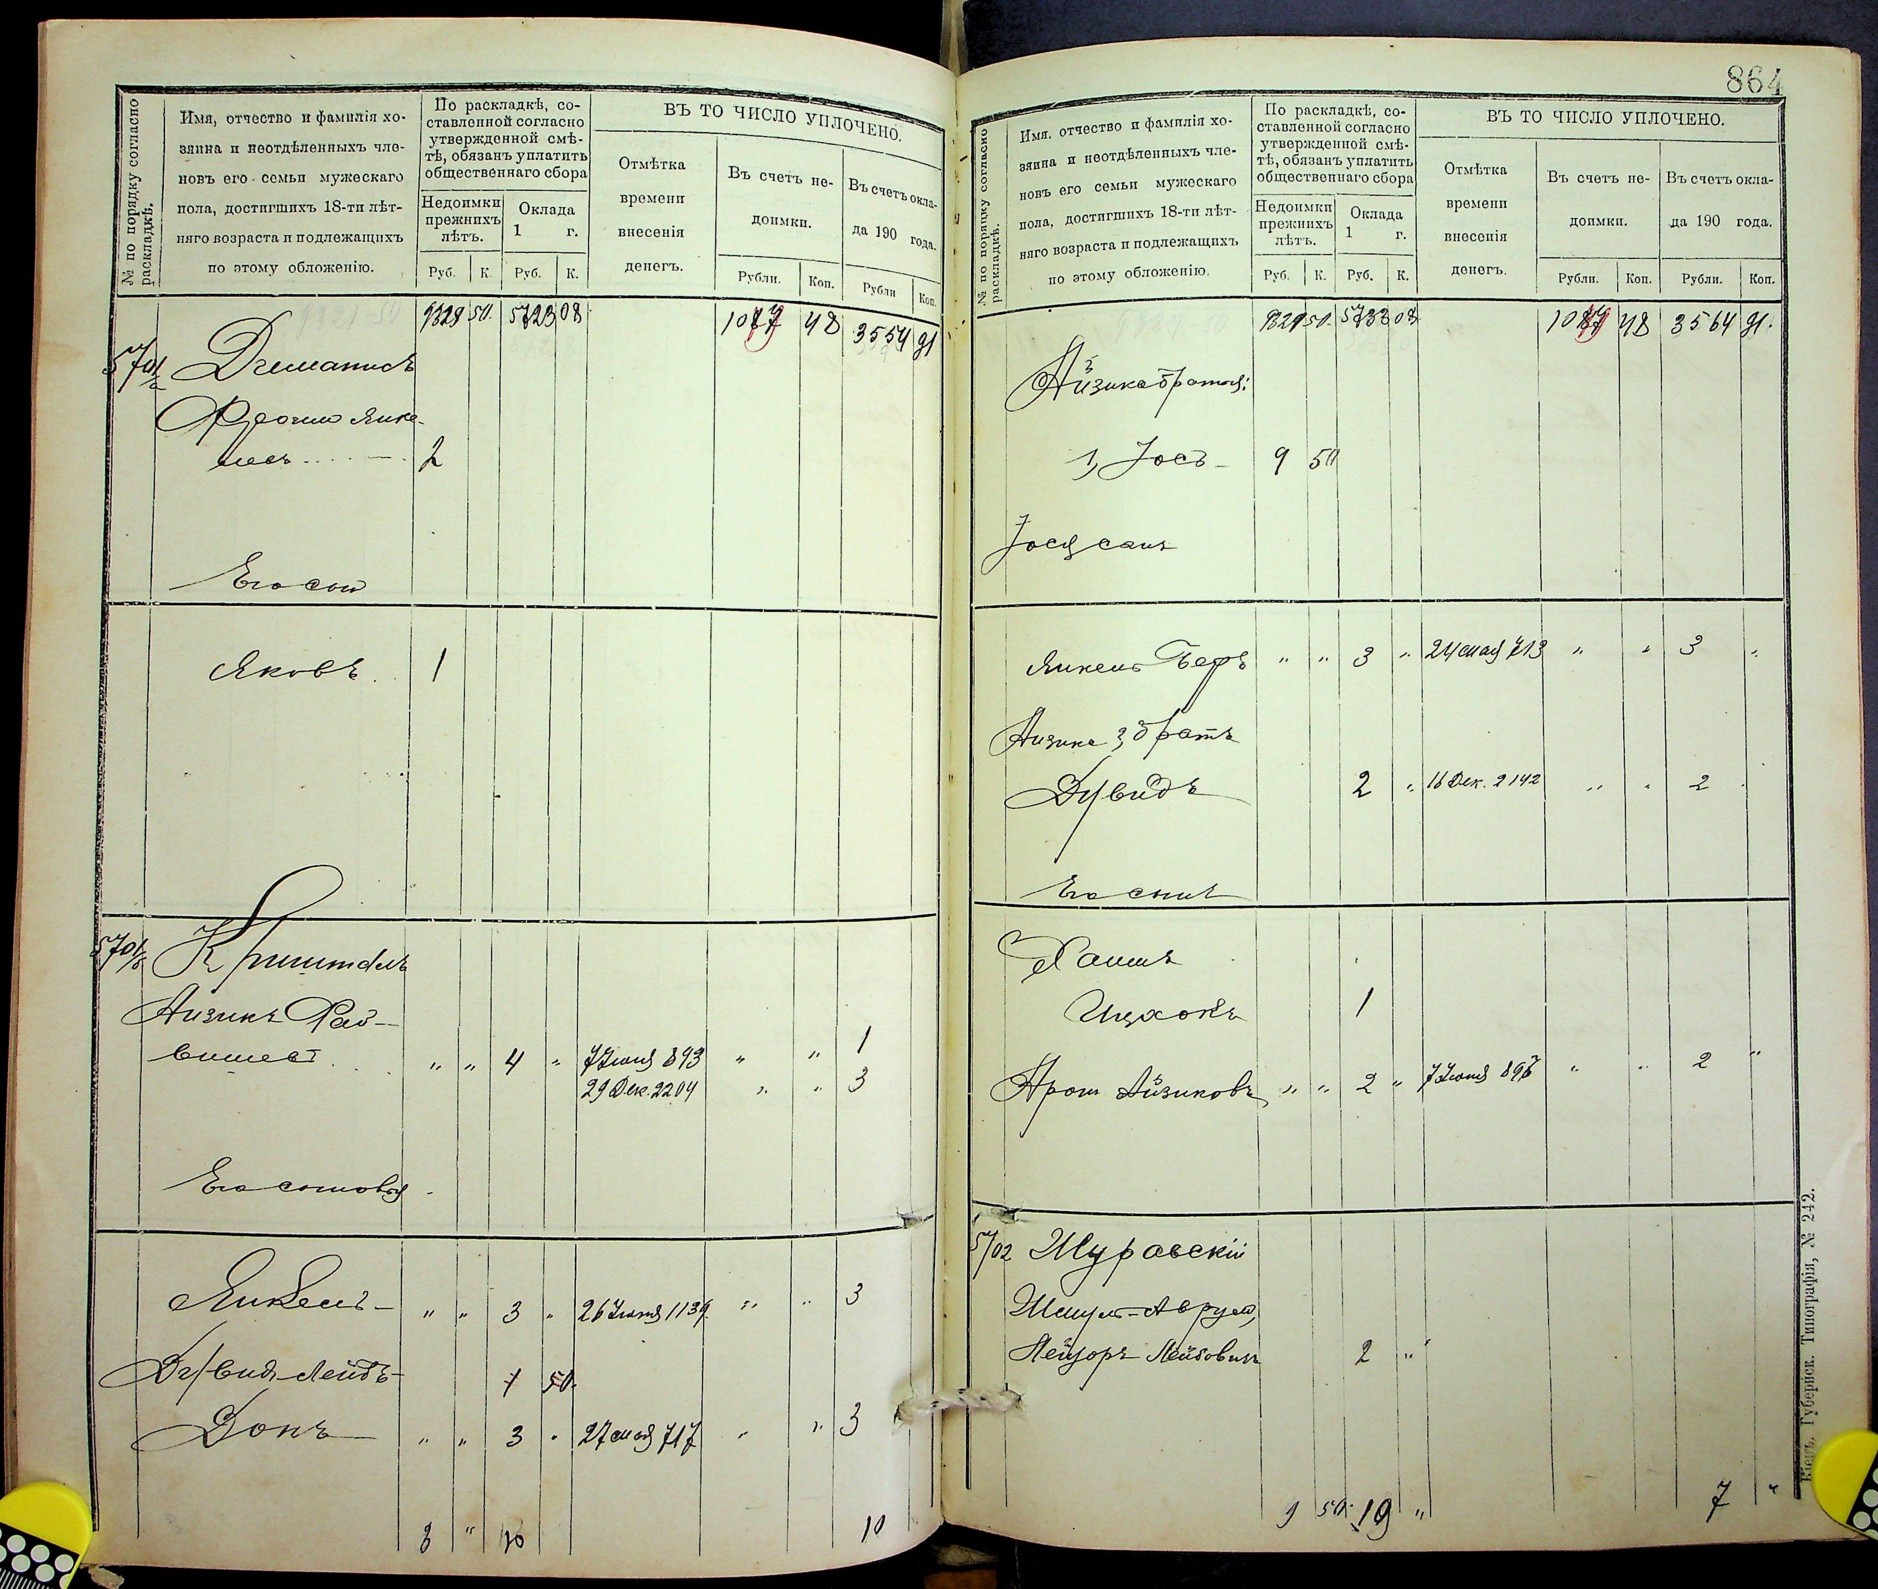 № по порядку согласно раскладкѣ.
Имя, отчество и фамилія хо-
зяина и неотдѣленныхъ чле-
новъ его семьи мужескаго
пола, достигшихъ 18-ти лѣт-
няго возраста и подлежащихъ
по этому обложенію.
По раскладкѣ, со-
ставленной согласно
утвержденной смѣ-
тѣ, обязанъ уплатить
общественнаго сбора
Недоимки
прежнихъ
лѣтъ.
Оклада
1 г.
Руб. К. Руб. К.
ВЪ ТО ЧИСЛО УПЛОЧЕНО.
Отмѣтка
времени
внесенія
денегъ.
Въ счетъ не-
доимки.
Въ счетъ окла-
да 190 года.
Рубли. Коп. Рубли Коп.
9328 50 5723 08 48 3554 91
5701/а
Янке-
2
Его сын
Яковъ 1
5701/б Криштал
Айзикъ Рай-
" " 4 " 7 Іюня 893 " " 1
29 Дек. 2204 " " 3
Его сыновья
Янкель - " " 3 " 26 Іюня 1139 " " 3
Дувид-Лейбъ- 1 50
" " 3 " 27 мая 717 " " 3
3 " 10 10
864
№ по порядку согласно раскладкѣ.
Имя, отчество и фамилія хо-
зяина и неотдѣленныхъ чле-
новъ его семьи мужескаго
пола, достигшихъ 18-ти лѣт-
няго возраста и подлежащихъ
по этому обложенію.
По раскладкѣ, со-
ставленной согласно
утвержденной смѣ-
тѣ, обязанъ уплатить
общественнаго сбора
Недоимки
прежнихъ
лѣтъ.
Оклада
1 г.
Руб. К. Руб. К.
ВЪ ТО ЧИСЛО УПЛОЧЕНО.
Отмѣтка
времени
внесенія
денегъ.
Въ счетъ не-
доимки.
Въ счетъ окла-
да 190 года.
Рубли. Коп. Рубли. Коп.
50 5733 08 48 3564 91
Айзика братья:
1, Іосъ - 9 50
Янкель Беръ " " 3 " 24 мая 713 " " 3 "
Айзика 3, братъ
Дувидъ 2 " 16 Дек. 2142 " " 2
Его сынъ
Хаимъ
Ицхокъ 1
Арон Айзиковъ " " 2 " 7 Іюня 896 " " 2 "
5702 Журавскій
Шмуль-Аврум,
Лейзоръ Лейбовичъ 2 "
9 50 19 " 7 "
Кіевъ. Губернск. Типографія, № 242.